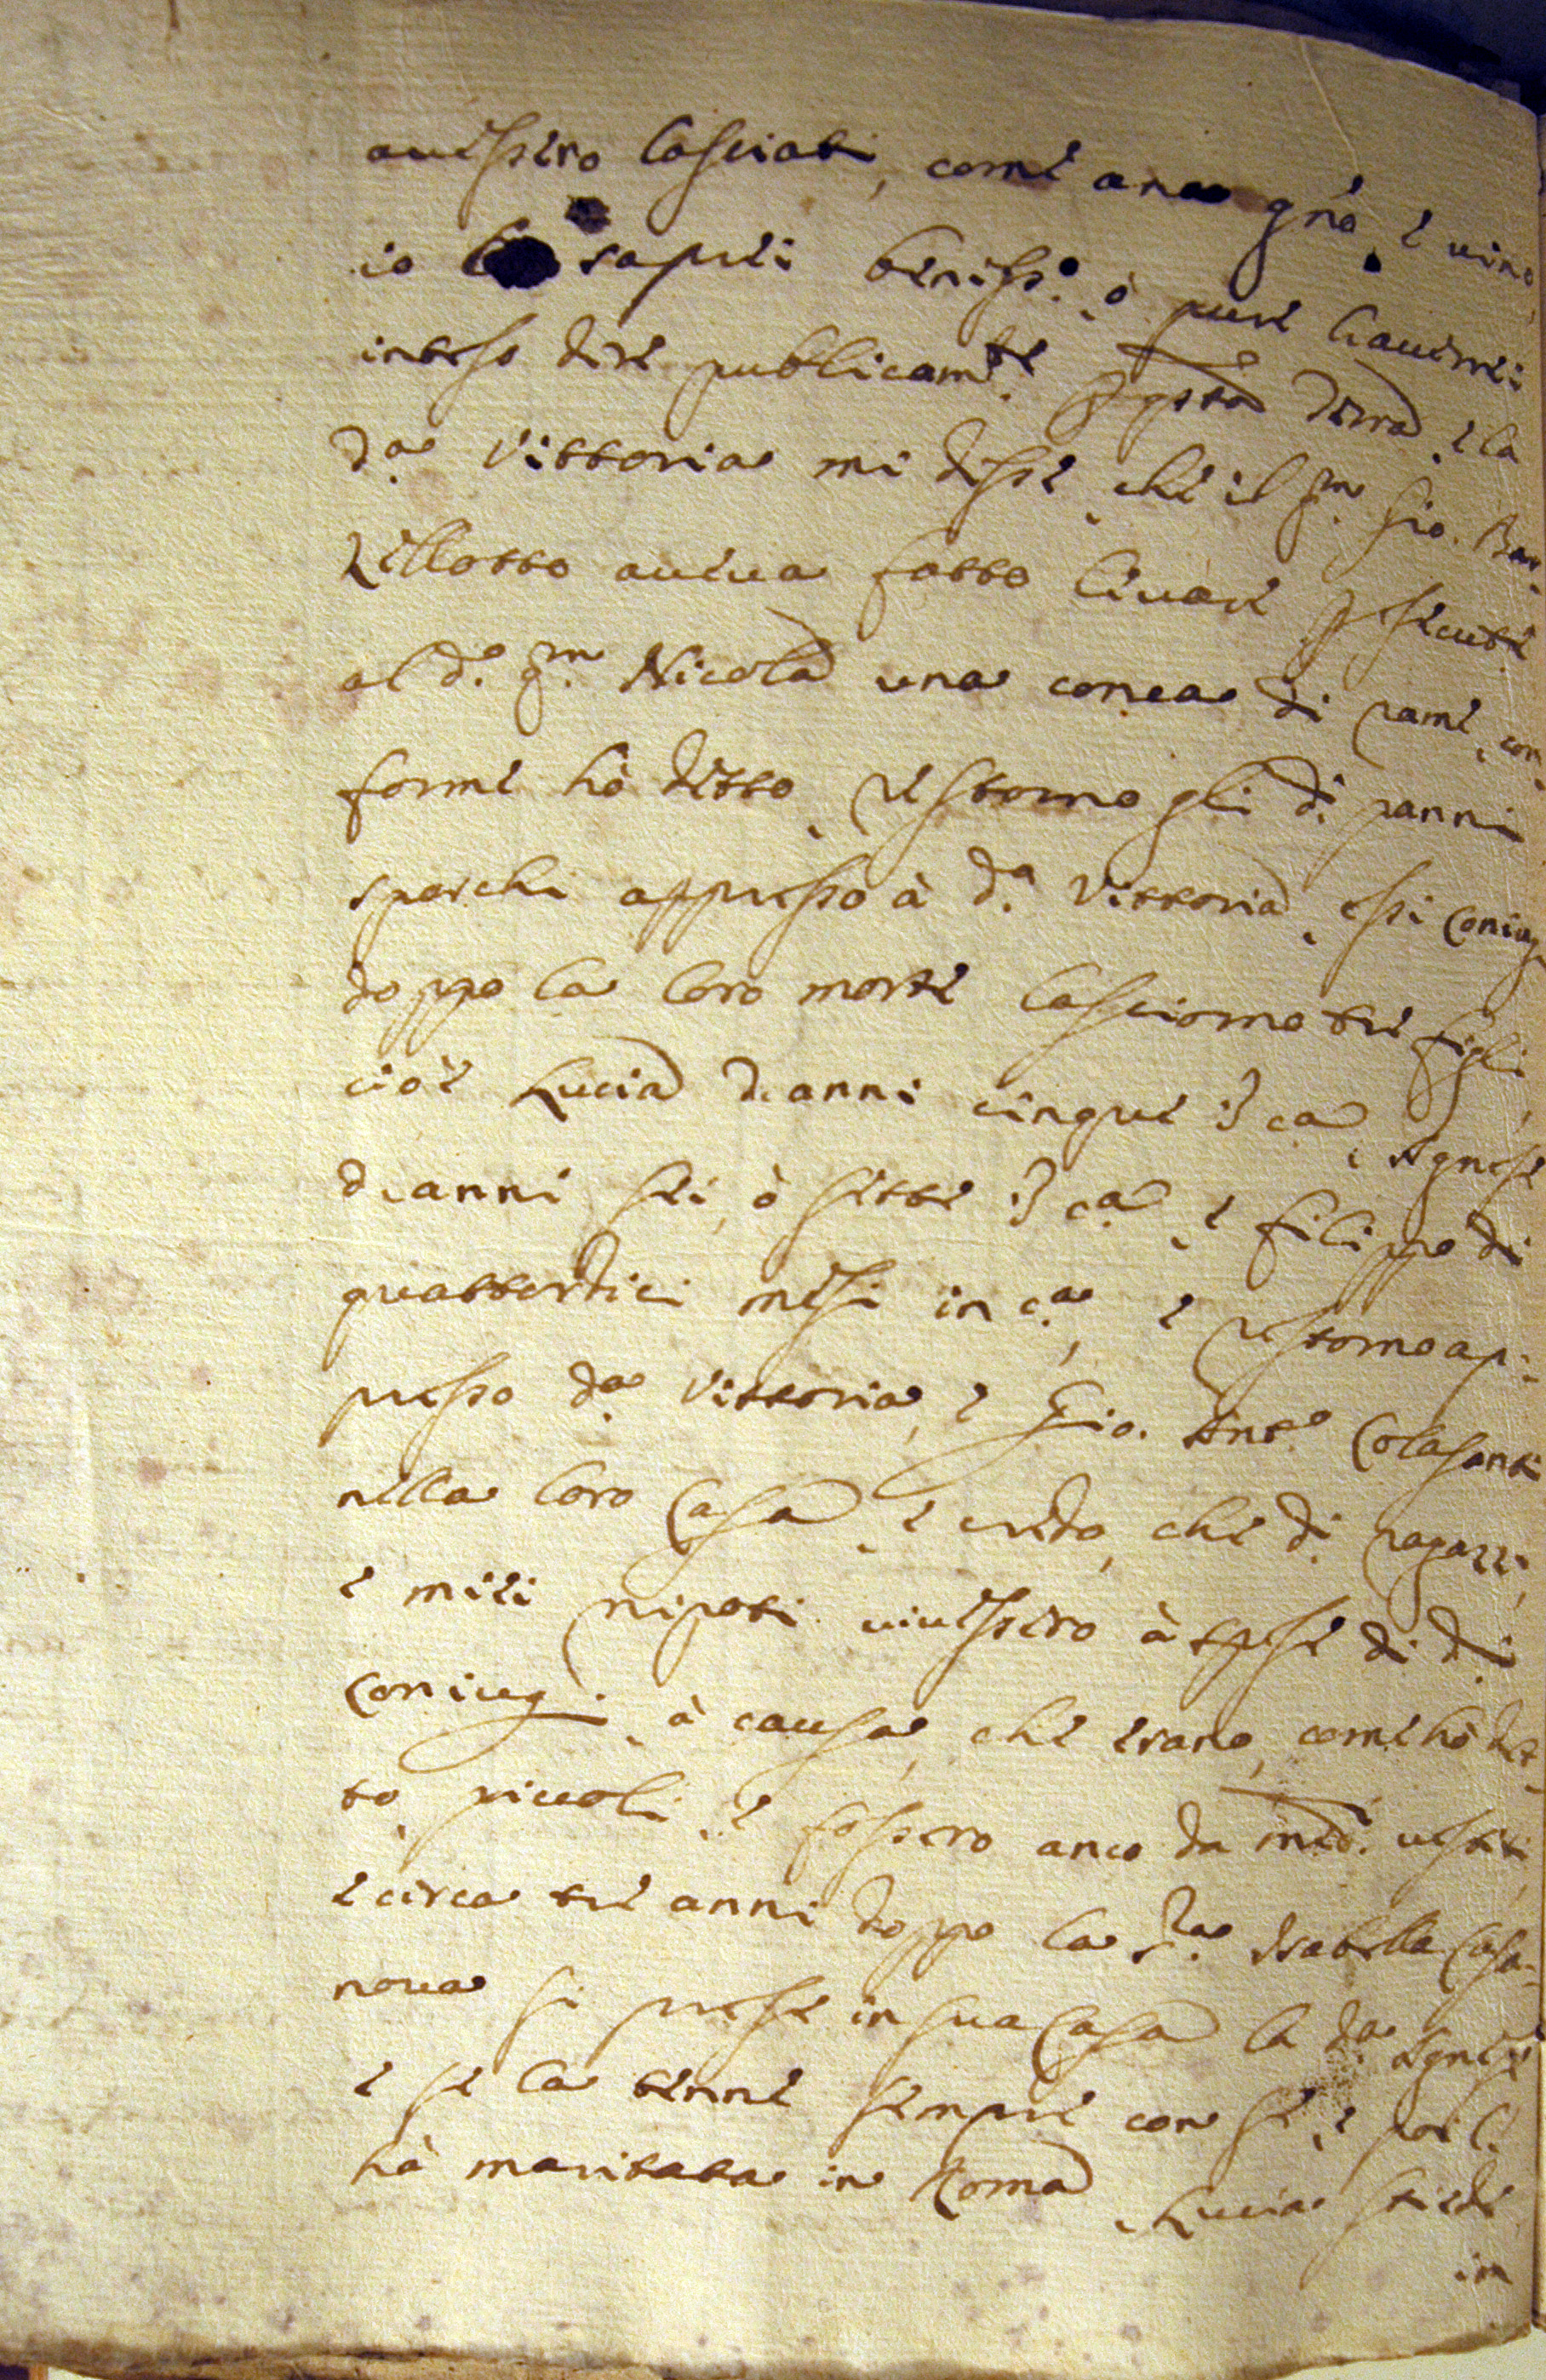 auessero lasciati, come anco gra̅, e uino,
io lo saprei beniss.º, ò pure hauerei
inteso dire publicam.te p̱ q̅sta Terra, e la
d.a Vittoria mi disse, che il q.m Gio. Bar.
Lillotto aueua fatto leuare p̱ seruti
al d.º q.m Nicola una conca di rame, con-
forme hò detto, restorno gli d.i panni
sporchi appresso à d.a Vittoria, essi Coniug.
doppo la loro morte lasciorno tre figli,
cioè Lucia d'anni cinque in ca, Agnese
d'anni sei, ò sette in ca, e Filippo di
quattordici mesi in c.a, e restorno ap:
presso d.a Vittoria, e Gio. Ant.º Colasanti
nella loro Casa, e credo, che d.i ragazzi,
e miei nipoti uiuessero à spese di d.i
Coniugi, à causa, che erano, come hò det-
to, piccoli, e fossero anco da med.i uestiti,
e circa tre anni doppo la S.ra Isabella Casa-
noua si prese in sua Casa la d.a Agnese
e se la tenne sempre con se, e poi l'
hà maritata in Roma, Lucia stiede
in